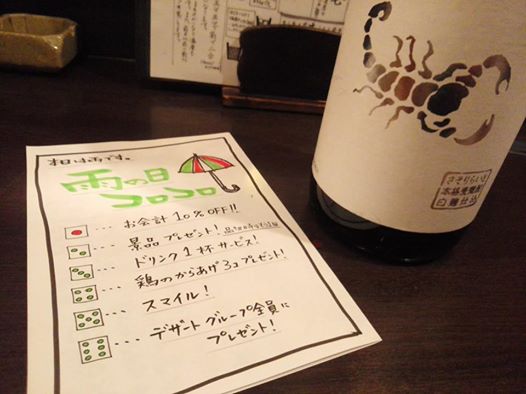 本日は雨です。
雨の日
コロコロ
・・・ お会計10%OFF!!
・・・ 景品プレゼント!
・・・ ドリンク1杯サービス!
・・・ 鶏のからあげ3コプレゼント!
・・・ スマイル!
・・・ デザートグループ全員に
プレゼント!
さそりらいと
本格麦焼酎
白麹仕込